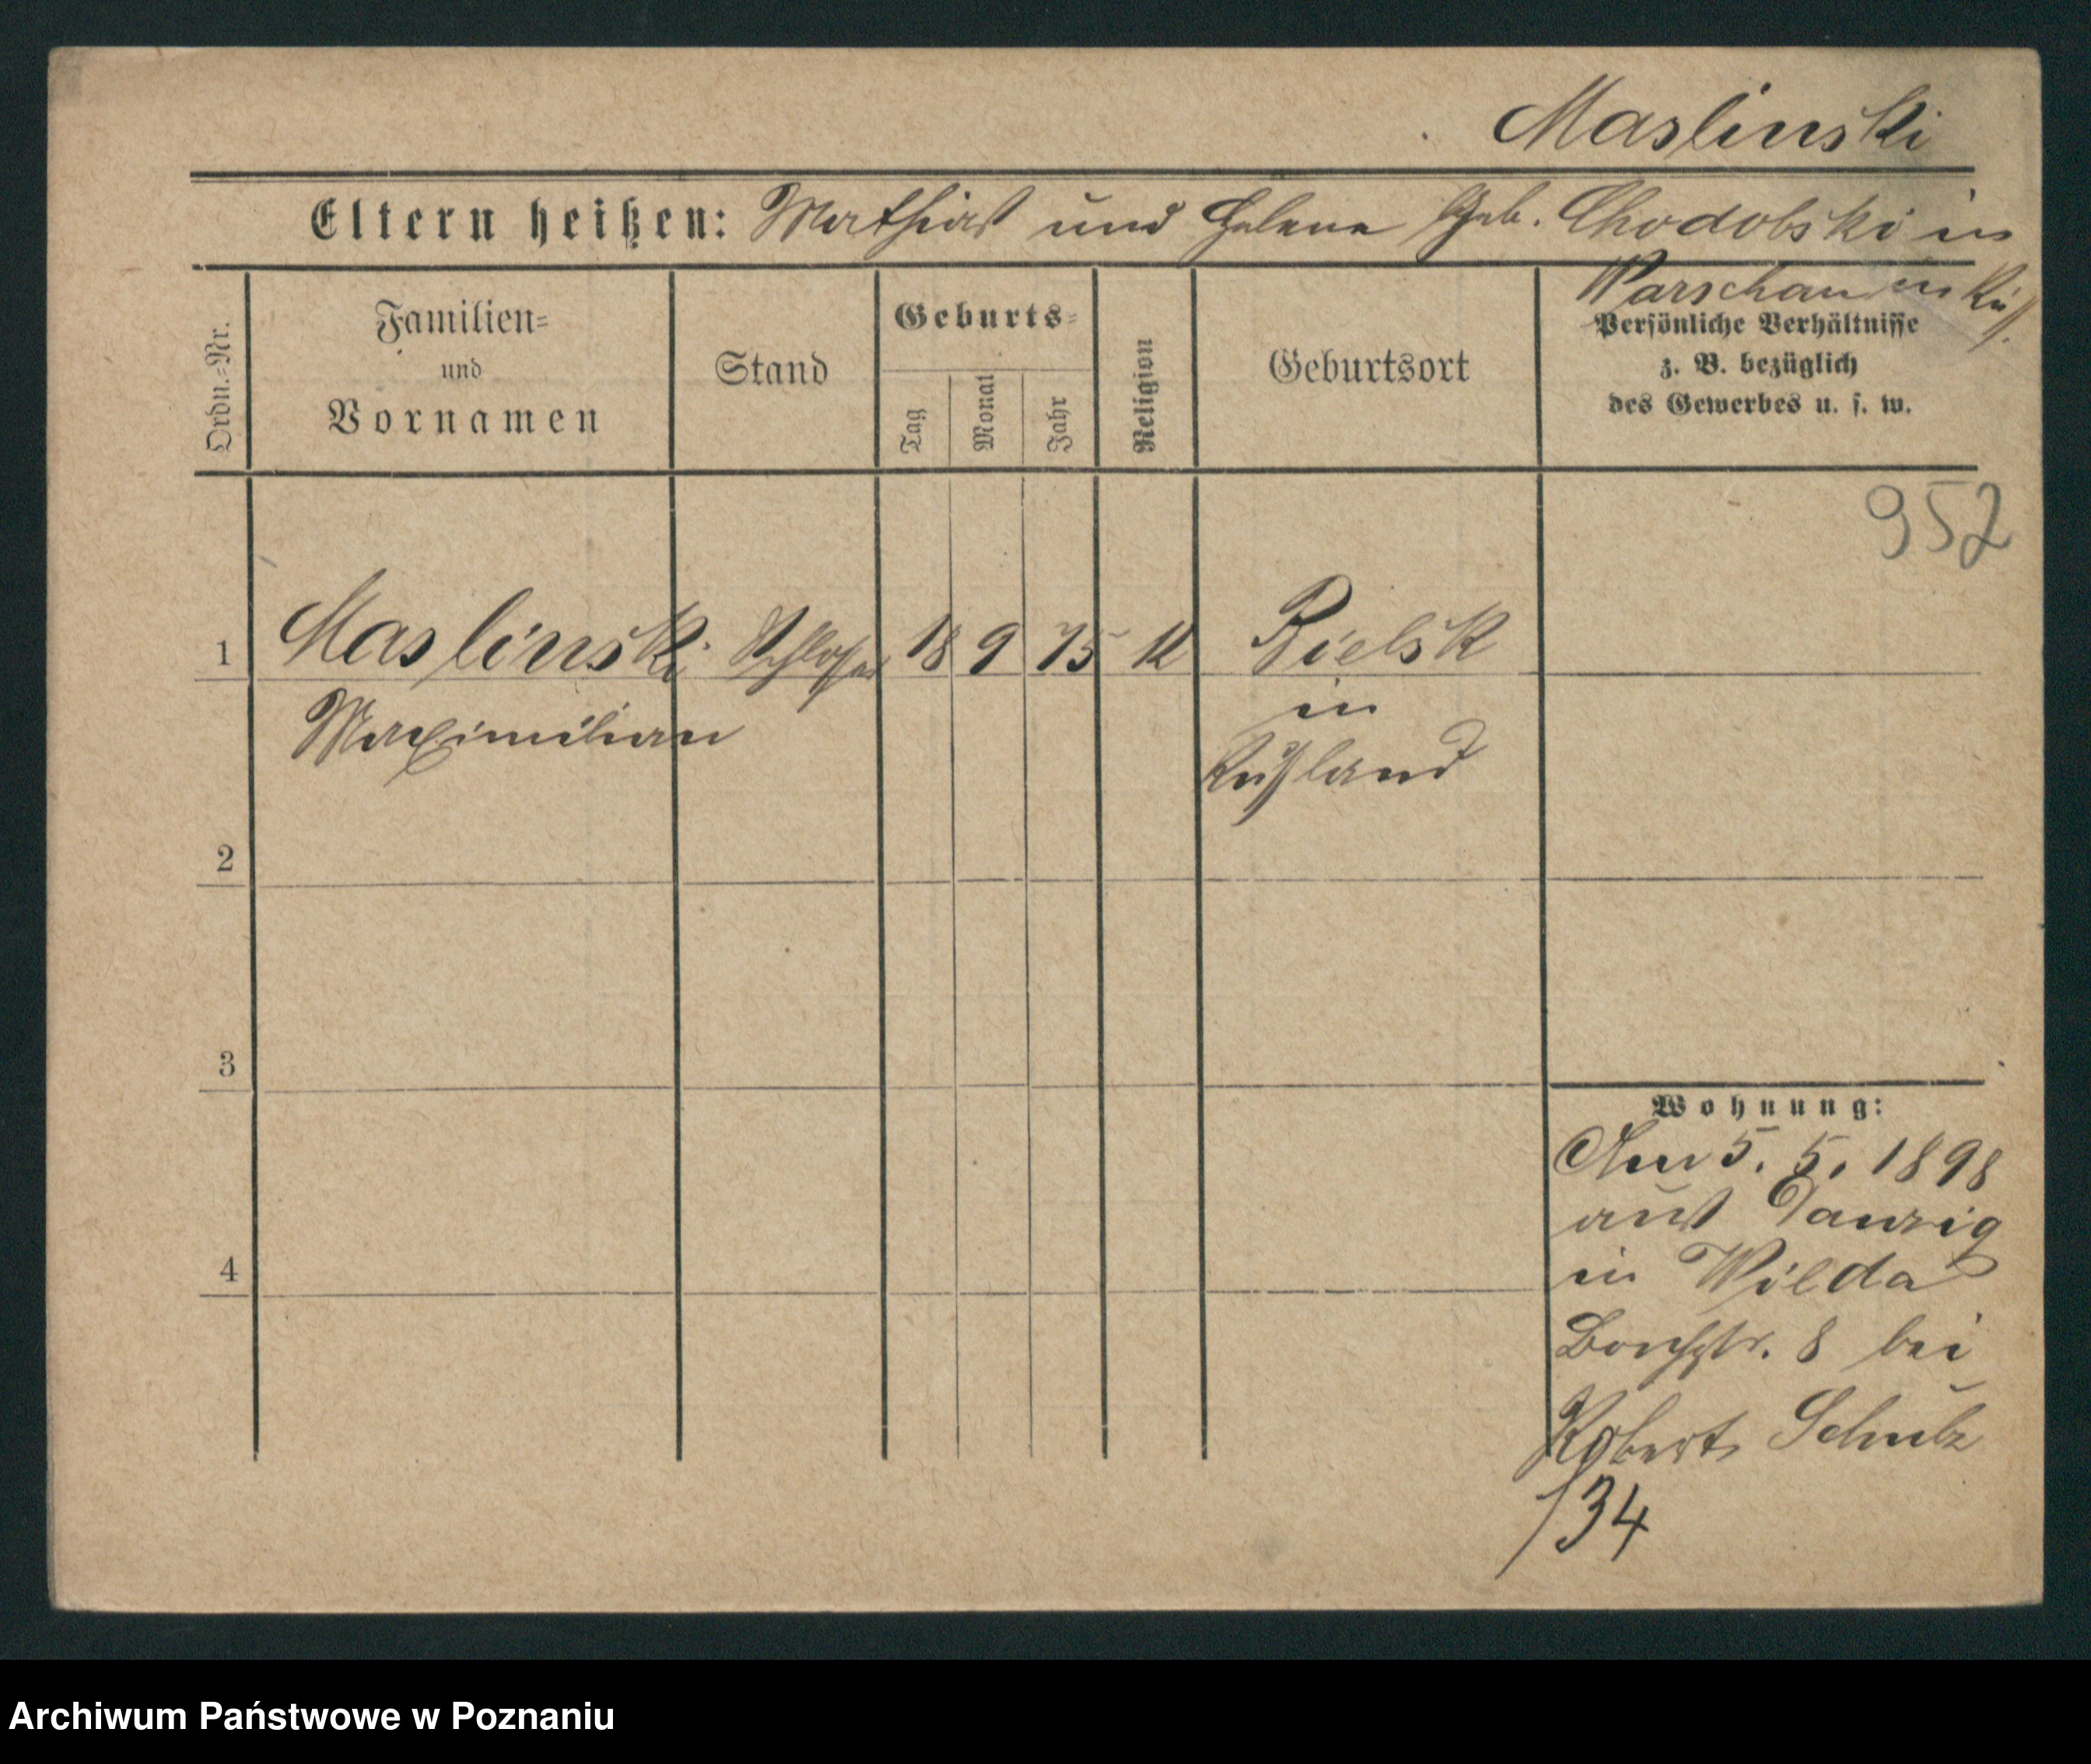 Maslinski
Eltern heißen: Mathias und Helene Geb. Chodobski in
Warschau in Ruß.
Ordn.-Nr.
Familien-
und
Vornamen
Stand
Geburts-
Tag
Monat
Jahr
Religion
Geburtsort
Persönliche Verhältnisse
z. B. bezüglich
des Gewerbes u. s. w.
952
1 Maslinski Schlosser 18 9 75 K Bielsk
Maximilian
in
Rußland
2
3
4
Wohnung:
Am 5. 5. 1898
aus Danzig
in Wilda
8 bei
Robert Schulz
134
Archiwum Państwowe w Poznaniu